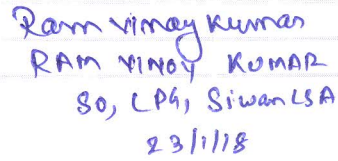 Ram Vinay Kumar
RAM VINOY KUMAR
SO, LPG, Siwan LSA
23/1/18